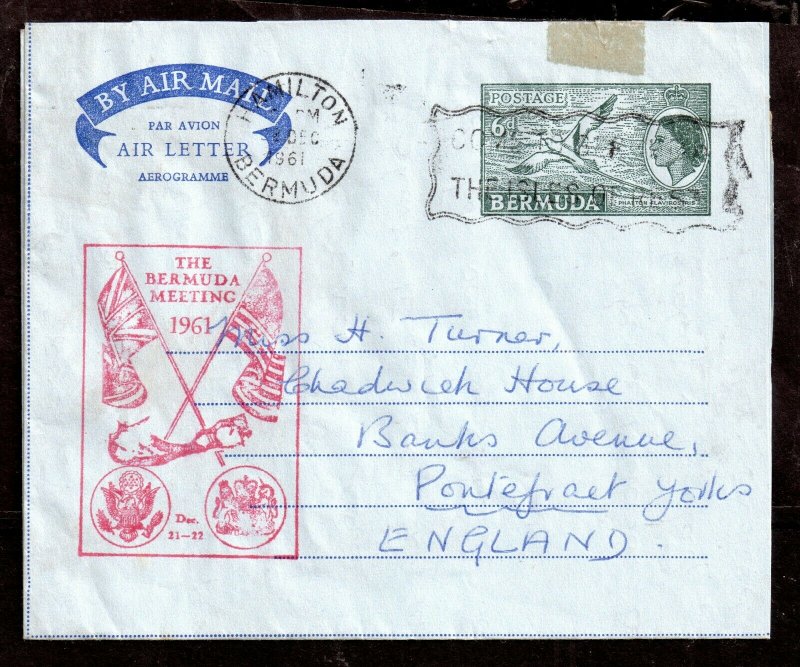 BY AIR MAIL
PAR AVION
AIR LETTER
AEROGRAMME
HAMILTON
PM
DEC
1961
BERMUDA
POSTAGE
6d
THE ISLES OF
BERMUDA
PHAETHON FLAVIROSTRIS
THE
BERMUDA
MEETING
1961
Dec.
21-22
Miss H. Turner,
Chadwick House
Banks Avenue,
Pontefract Yorks
ENGLAND.